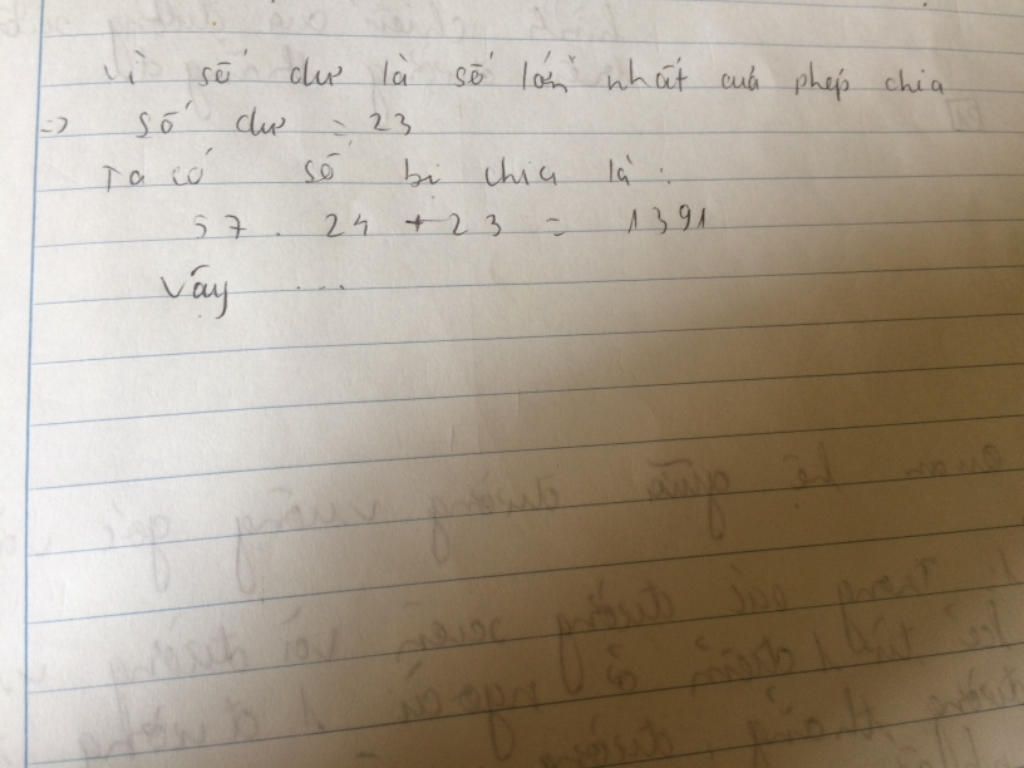 Vì số dư là số lớn nhất của phép chia
=> số dư = 23
Ta có số bị chia là :
57 . 24 + 23 = 1391
Vậy ...